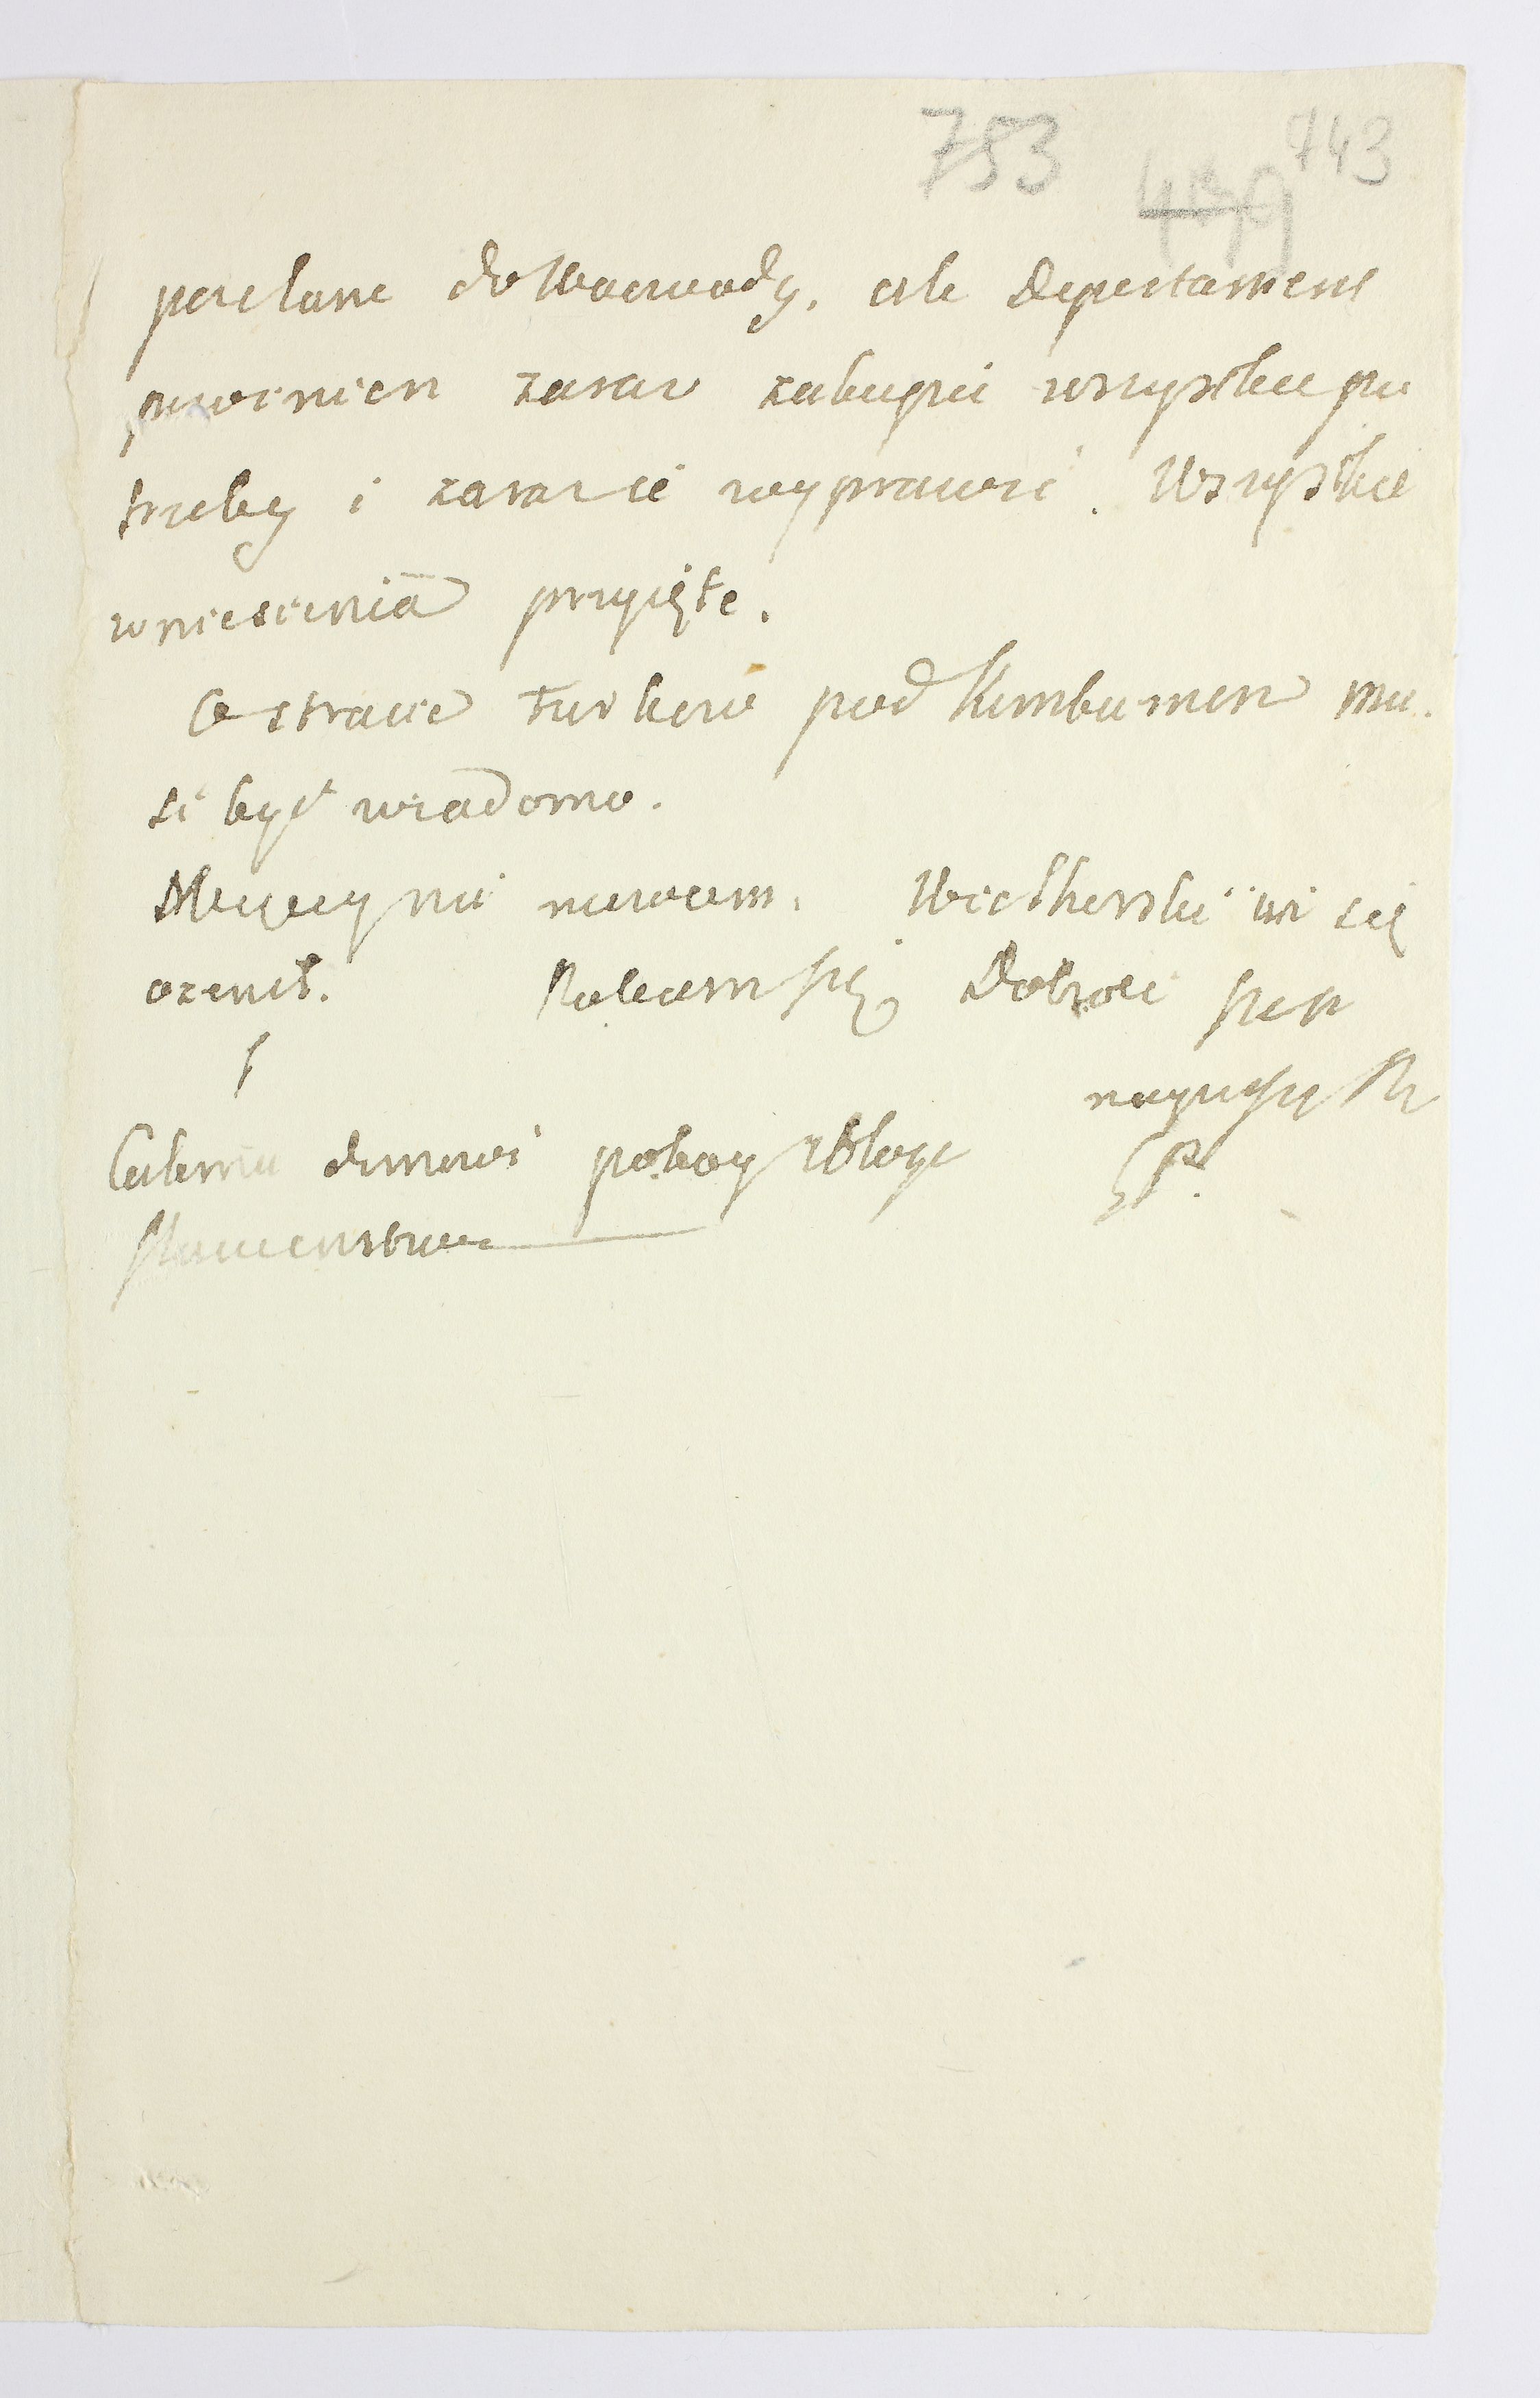 753 439 743
posłane do Woiewody, ale Departament
powinien zaraz zakupić wszystkie po
trzeby i zaraz ie wyprawić. Wszystkie
wniesienia przyięte.
O stracie Turkow pod Kimburnem mu
si być wiadomo.
Więcey nie nowem. Wielhorski iuż się
ożenił. Polecam się Dobroci
Całemu domowi pokoy i błogo
sławienstwo